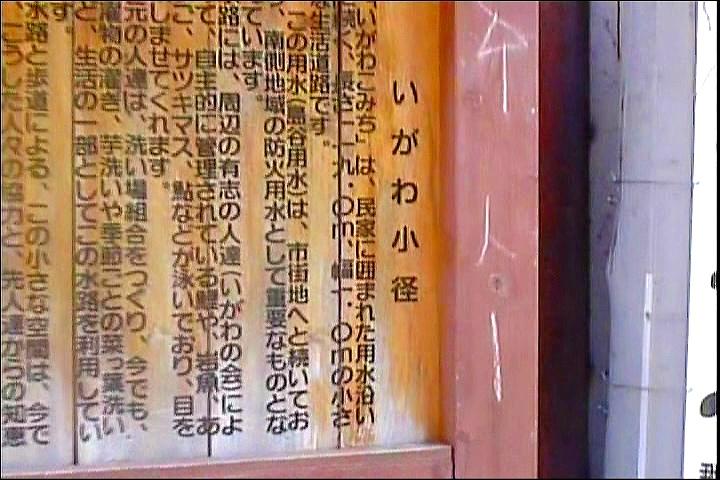 いがわ小径
「いがわこみち」は、民家に囲まれた用水沿い
に続く、長さ一一九・〇m、幅一・〇mの小さ
な生活道路です。
この用水(島谷用水)は、市街地へと続いてお
り、南側地域の防火用水として重要なものとな
っています。
水路には、周辺の有志の人達(いがわの会)によ
って、自主的に管理されている鯉や、岩魚、あ
まご、サツキマス、鮎などが泳いでおり、目を
楽しませてくれます。
地元の人達は、洗い場組合をつくり、今でも、
洗濯物の濯ぎ、芋洗いや季節ごとの菜っ葉洗い
など、生活の一部としてこの水路を利用してい
ます。
水路と歩道による、この小さな空間は、今で